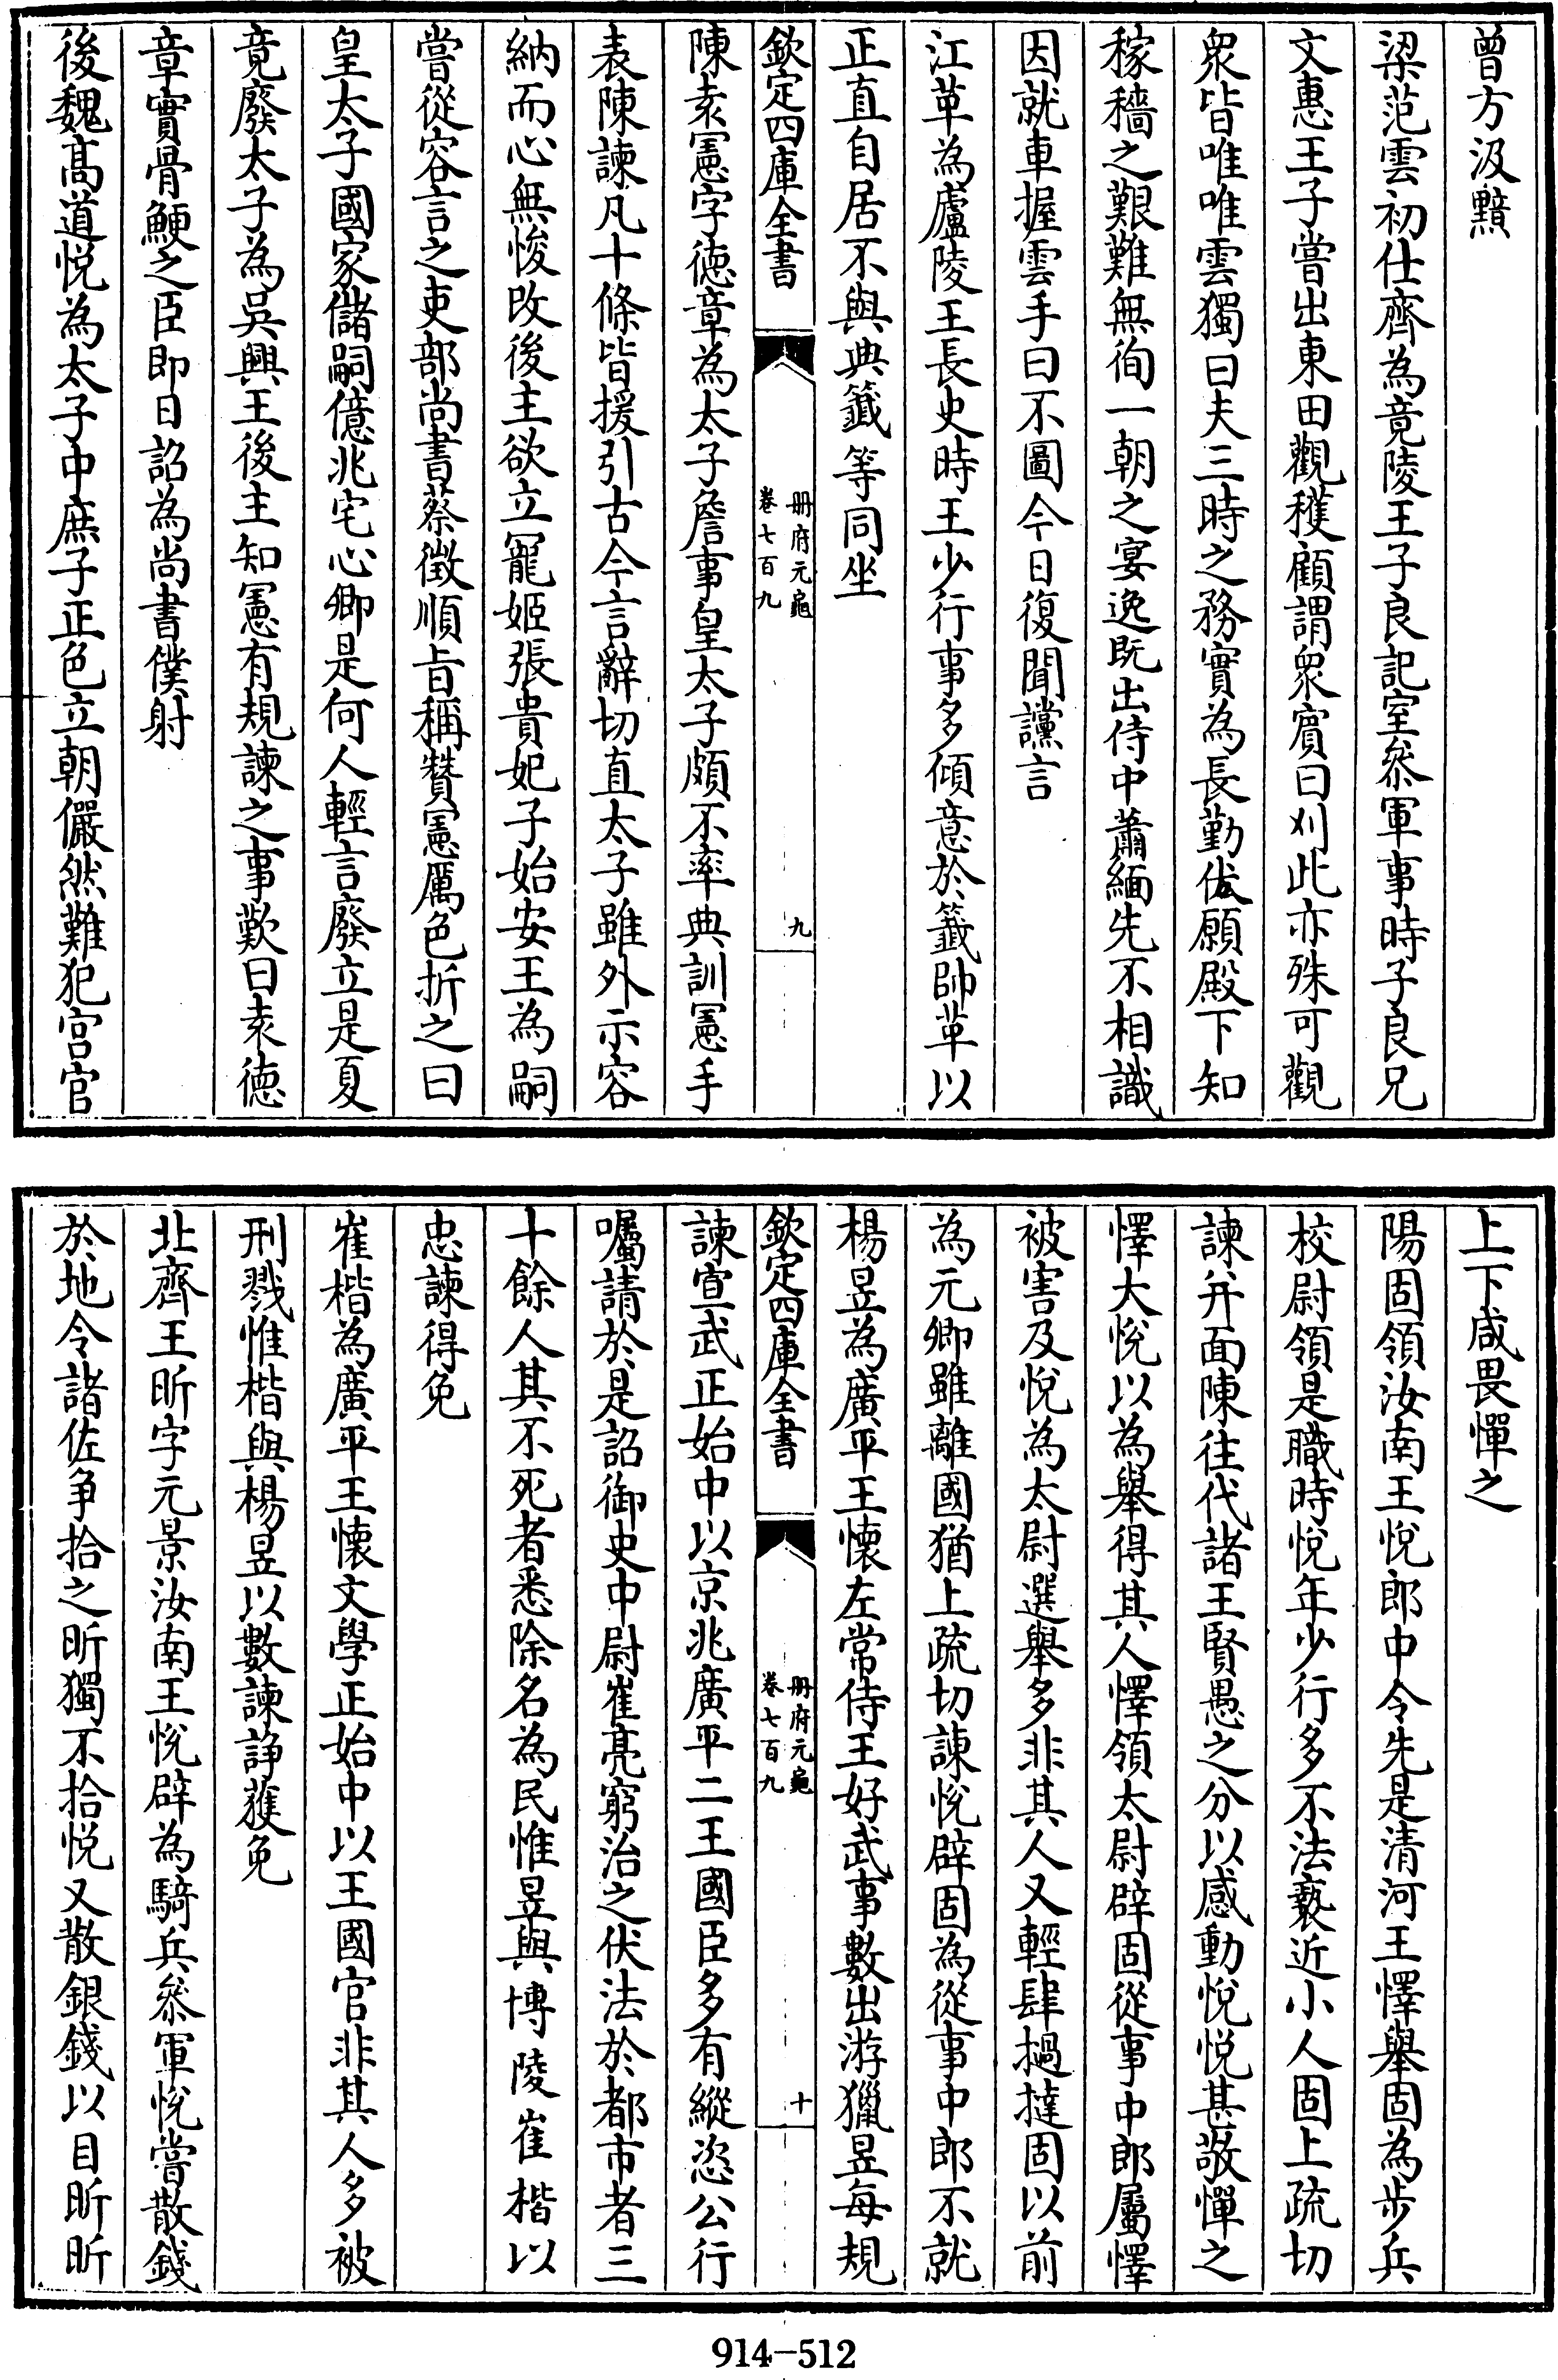 曾方汲黯
梁范雲初仕齊為竟陵王子良記室叅軍事時子良兄
文惠王子嘗出東田觀穫顧謂衆賓曰刈此亦殊可觀
衆皆唯唯雲獨曰夫三時之務實為長勤伏願殿下知
稼穡之艱難無徇一朝之宴逸既出侍中蕭緬先不相識
因就車握雲手曰不圖今日復聞讜言
江革為廬陵王長史時王少行事多傾意於籤帥革以
正直自居不與典籤等同坐
欽定四庫全書
冊府元龜
卷七百九
九
陳袁憲字徳章為太子詹事皇太子頗不率典訓憲手
表陳諫凡十條皆援引古今言辭切直太子雖外示容
納而心無悛改後主欲立寵姬張貴妃子始安王為嗣
嘗從容言之吏部尚書蔡徴順旨稱贊憲厲色折之曰
皇太子國家儲嗣億兆宅心卿是何人輕言廢立是夏
竟廢太子為吳興王後主知憲有規諫之事歎曰袁徳
章實骨鯁之臣即日詔為尚書僕射
後魏髙道悦為太子中庶子正色立朝儼然難犯宫官
上下咸畏憚之
陽固領汝南王悅郎中令先是清河王懌舉固為步兵
校尉領是職時悅年少行多不法䙝近小人固上疏切
諫并面陳往代諸王賢愚之分以感動悅悅甚敬憚之
懌大悅以為舉得其人懌領太尉辟固從事中郎屬懌
被害及悅為太尉選舉多非其人又輕肆撾撻固以前
為元卿雖離國猶上疏切諫悅辟固為從事中郎不就
楊昱為廣平王懷左常侍王好武事數出游獵昱每規
欽定四庫全書
冊府元龜
卷七百九
十
諫宣武正始中以京兆廣平二王國臣多有縱恣公行
囑請於是詔御史中尉崔亮窮治之伏法於都市者三
十餘人其不死者悉除名為民惟昱與博陵崔楷以
忠諫得免
崔楷為廣平王懷文學正始中以王國官非其人多被
刑戮惟楷與楊昱以數諫諍獲免
北齊王昕字元景汝南王悅辟為騎兵叅軍悅嘗散錢
於地令諸佐争拾之昕獨不拾悅又散銀錢以目昕昕
914-512